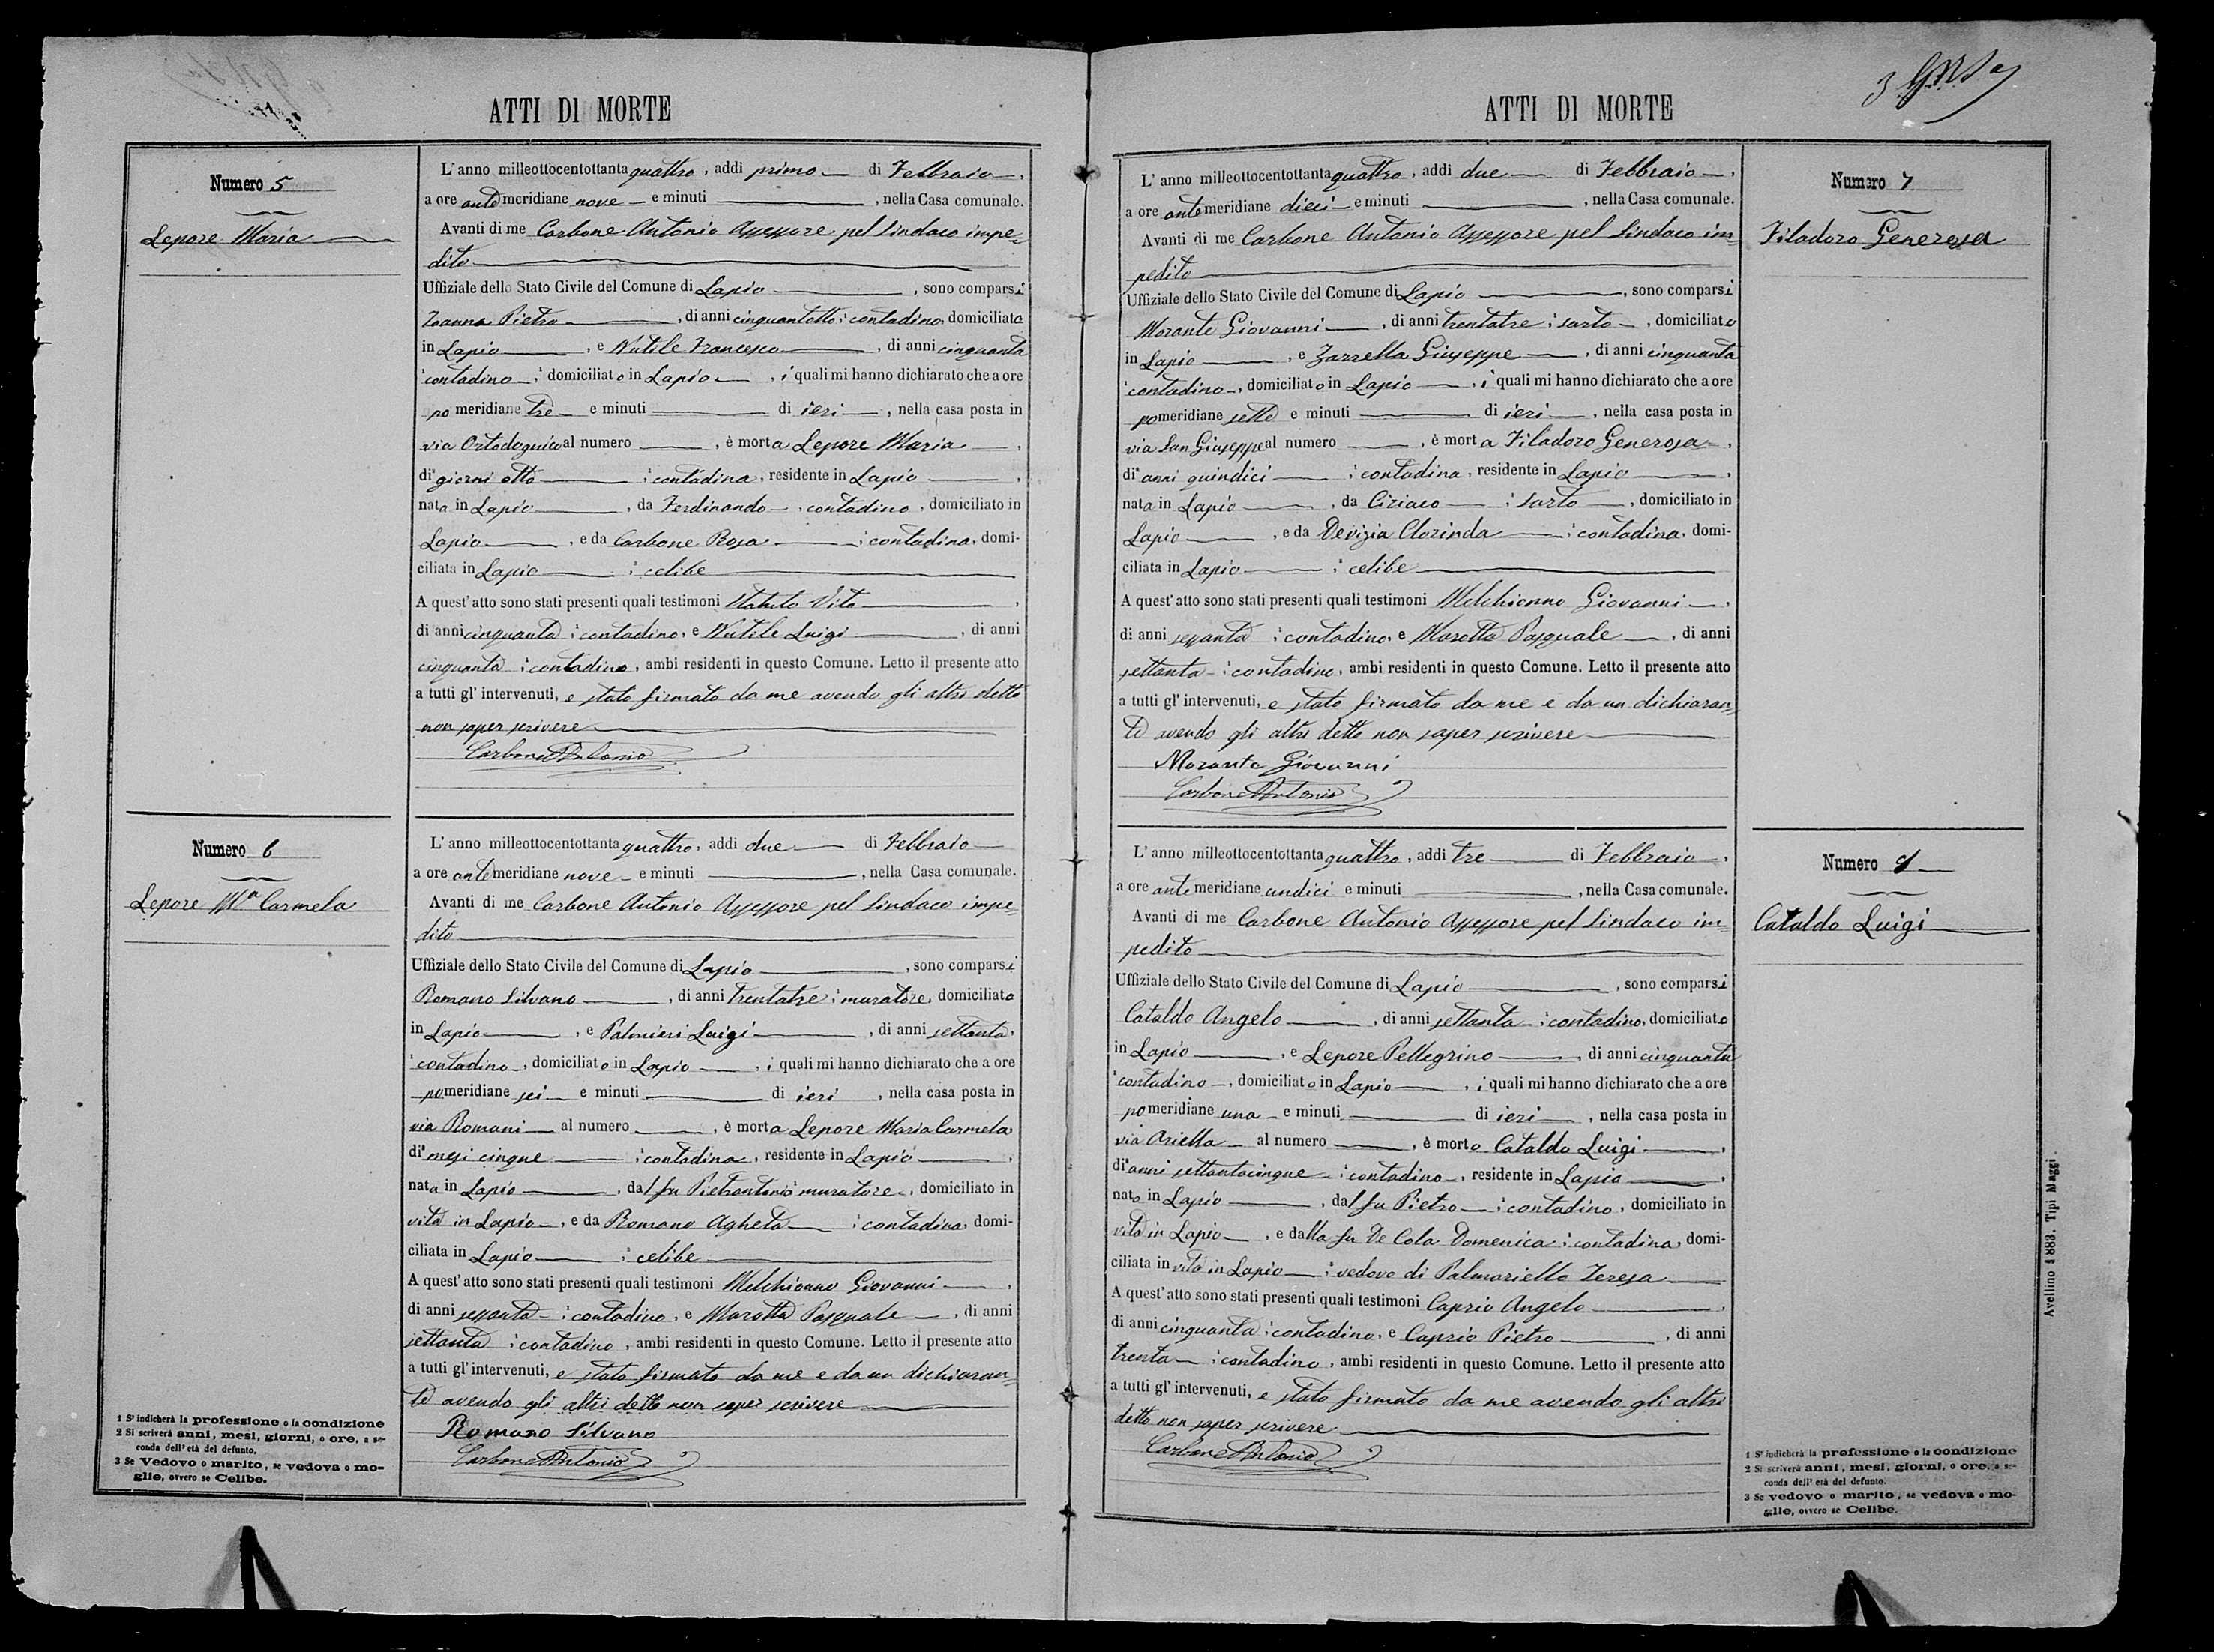 ATTI DI MORTE
Numero 5
Lepore Maria
L'anno milleottocentottantaquattro, addì primo di Febbraio,
a ore antemeridiane nove e minuti , nella Casa comunale.
Avanti di me Carbone Antonio Assessore pel Sindaco impe=
dito
Uffiziale dello Stato Civile del Comune di Lapio , sono comparsi
Pietro , di anni cinquantotto, contadino, domiciliato
in Lapio , e Nutile Francesco , di anni cinquanta
contadino, domiciliato in Lapio , i quali mi hanno dichiarato che a ore
pomeridiane tre e minuti di ieri , nella casa posta in
via al numero , è morta Lepore Maria ,
di giorni otto , contadina, residente in Lapio ,
nata in Lapio , da Ferdinando , contadino, domiciliato in
Lapio , e da Carbone Rosa , contadina, domi-
ciliata in Lapio , celibe
A quest'atto sono stati presenti quali testimoni Vito ,
di anni cinquanta, contadino, e Nutile Luigi , di anni
cinquanta, contadino, ambi residenti in questo Comune. Letto il presente atto
a tutti gl'intervenuti, e stato firmato da me avendo gli altri detto
non saper scrivere
Carbone Antonio
Numero 6
Lepore Mª Carmela
L'anno milleottocentottantaquattro, addì due di Febbraio
a ore antemeridiane nove e minuti , nella Casa comunale.
Avanti di me Carbone Antonio Assessore pel Sindaco impe=
dito
Uffiziale dello Stato Civile del Comune di Lapio , sono comparsi
Romano Silvano , di anni trentatre, muratore, domiciliato
in Lapio , e Palmieri Luigi , di anni settanta,
contadino, domiciliato in Lapio , i quali mi hanno dichiarato che a ore
pomeridiane sei e minuti di ieri , nella casa posta in
via Romani al numero , è morta Lepore Maria Carmela
di mesi cinque , contadina, residente in Lapio ,
nata in Lapio , dal fu Pietrantonio muratore, domiciliato in
vita in Lapio, e da Romano Agheta , contadina, domi-
ciliata in Lapio , celibe
A quest'atto sono stati presenti quali testimoni Melchionno Giovanni ,
di anni sessanta, contadino, e Marotta Pasquale , di anni
settanta, contadino, ambi residenti in questo Comune. Letto il presente atto
a tutti gl'intervenuti, e stato firmato da me e da un dichiaran=
te avendo gli altri detto non saper scrivere
Romano Silvano
Carbone Antonio
1 S'indicherà la professione o la condizione
2 Si scriverà anni, mesi, giorni, o ore, a se-
conda dell'età del defunto.
3 Se Vedovo o marito, se vedova o mo-
glie, ovvero se Celibe.
ATTI DI MORTE
3
Numero 7
Filadoro Generosa
L'anno milleottocentottantaquattro, addì due di Febbraio ,
a ore antemeridiane dieci e minuti , nella Casa comunale.
Avanti di me Carbone Antonio Assessore pel Sindaco im=
pedito
Uffiziale dello Stato Civile del Comune di Lapio , sono comparsi
Morante Giovanni , di anni trentatre, sarto , domiciliato
in Lapio , e Zarrella Giuseppe , di anni cinquanta
contadino, domiciliato in Lapio , i quali mi hanno dichiarato che a ore
pomeridiane sette e minuti di ieri , nella casa posta in
via San Giuseppe al numero , è morta Filadoro Generosa ,
di anni quindici , contadina, residente in Lapio ,
nata in Lapio , da Ciriaco , sarto , domiciliato in
Lapio , e da Devizia Clorinda , contadina, domi-
ciliata in Lapio , celibe
A quest'atto sono stati presenti quali testimoni Melchionno Giovanni ,
di anni sessanta, contadino, e Marotta Pasquale , di anni
settanta, contadino, ambi residenti in questo Comune. Letto il presente atto
a tutti gl'intervenuti, e stato firmato da me e da un dichiaran=
te avendo gli altri detto non saper scrivere
Morante Giovanni
Carbone Antonio
Numero 8
Cataldo Luigi
L'anno milleottocentottantaquattro, addì tre di Febbraio ,
a ore antemeridiane undici e minuti , nella Casa comunale.
Avanti di me Carbone Antonio Assessore pel Sindaco im=
pedito
Uffiziale dello Stato Civile del Comune di Lapio , sono comparsi
Cataldo Angelo , di anni settanta, contadino, domiciliato
in Lapio , e Lepore Pellegrino , di anni cinquanta
contadino, domiciliato in Lapio , i quali mi hanno dichiarato che a ore
pomeridiane una e minuti di ieri , nella casa posta in
via Ariella al numero , è morto Cataldo Luigi ,
di anni settantacinque, contadino, residente in Lapio ,
nato in Lapio , dal fu Pietro , contadino, domiciliato in
vita in Lapio , e dalla fu De Cola Domenica, contadina, domi-
ciliata in vita in Lapio , vedovo di Palmariello Teresa
A quest'atto sono stati presenti quali testimoni Caprio Angelo ,
di anni cinquanta, contadino, e Caprio Pietro , di anni
trenta, contadino, ambi residenti in questo Comune. Letto il presente atto
a tutti gl'intervenuti, e stato firmato da me avendo gli altri
detto non saper scrivere
Carbone Antonio
1 S'indicherà la professione o la condizione
2 Si scriverà anni, mesi, giorni, o ore, a se-
conda dell'età del defunto.
3 Se vedovo o marito, se vedova o mo-
glie, ovvero se Celibe.
Avellino 1883, Tipi Maggi.